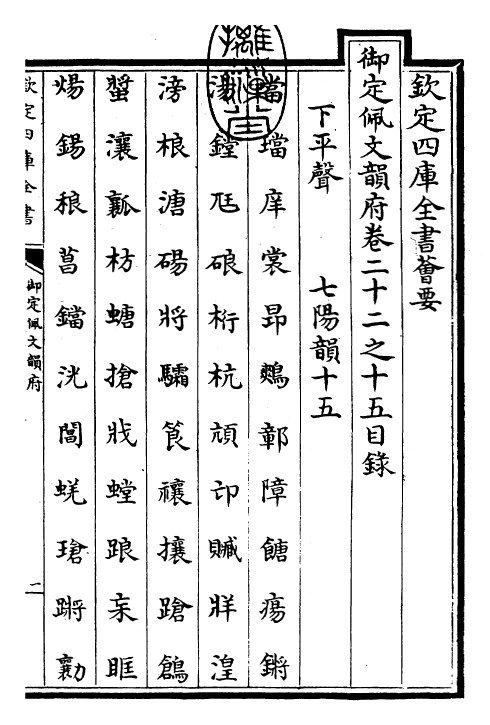 欽定四庫全書薈要
御定佩文韻府卷二十二之十五目錄
下平聲　七陽韻十五
璫庠裳昂鷞鄣障餹瘍鏘
鏜尫硠桁杭頏卬贓牂湟
滂桹溏碭將驦筤禳攘蹌鶬
螿瀼瓤枋螗搶戕螳踉亲眶
煬鍚稂菖鐺洸閶蜣瑲蹡勷
欽定四庫全書
御定佩文韻府
二